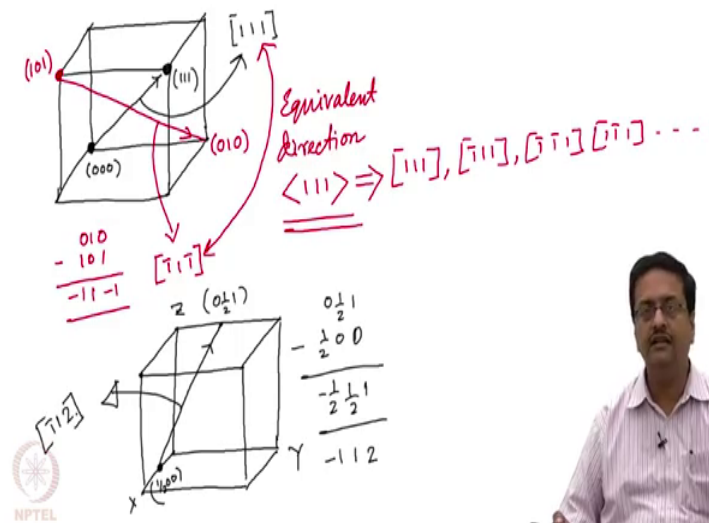 [111]
(101)
(111)
Equivalent
direction
<111> ⇒ [111], [1̄11], [1̄1̄1] [1̄1̄1] ---
(010)
(000)
010
- 101
-11-1
[1̄11̄]
Z (0½1)
0½1
- ½00
-½½1
-112
[1̄12]
Y
X
(½00)
NPTEL